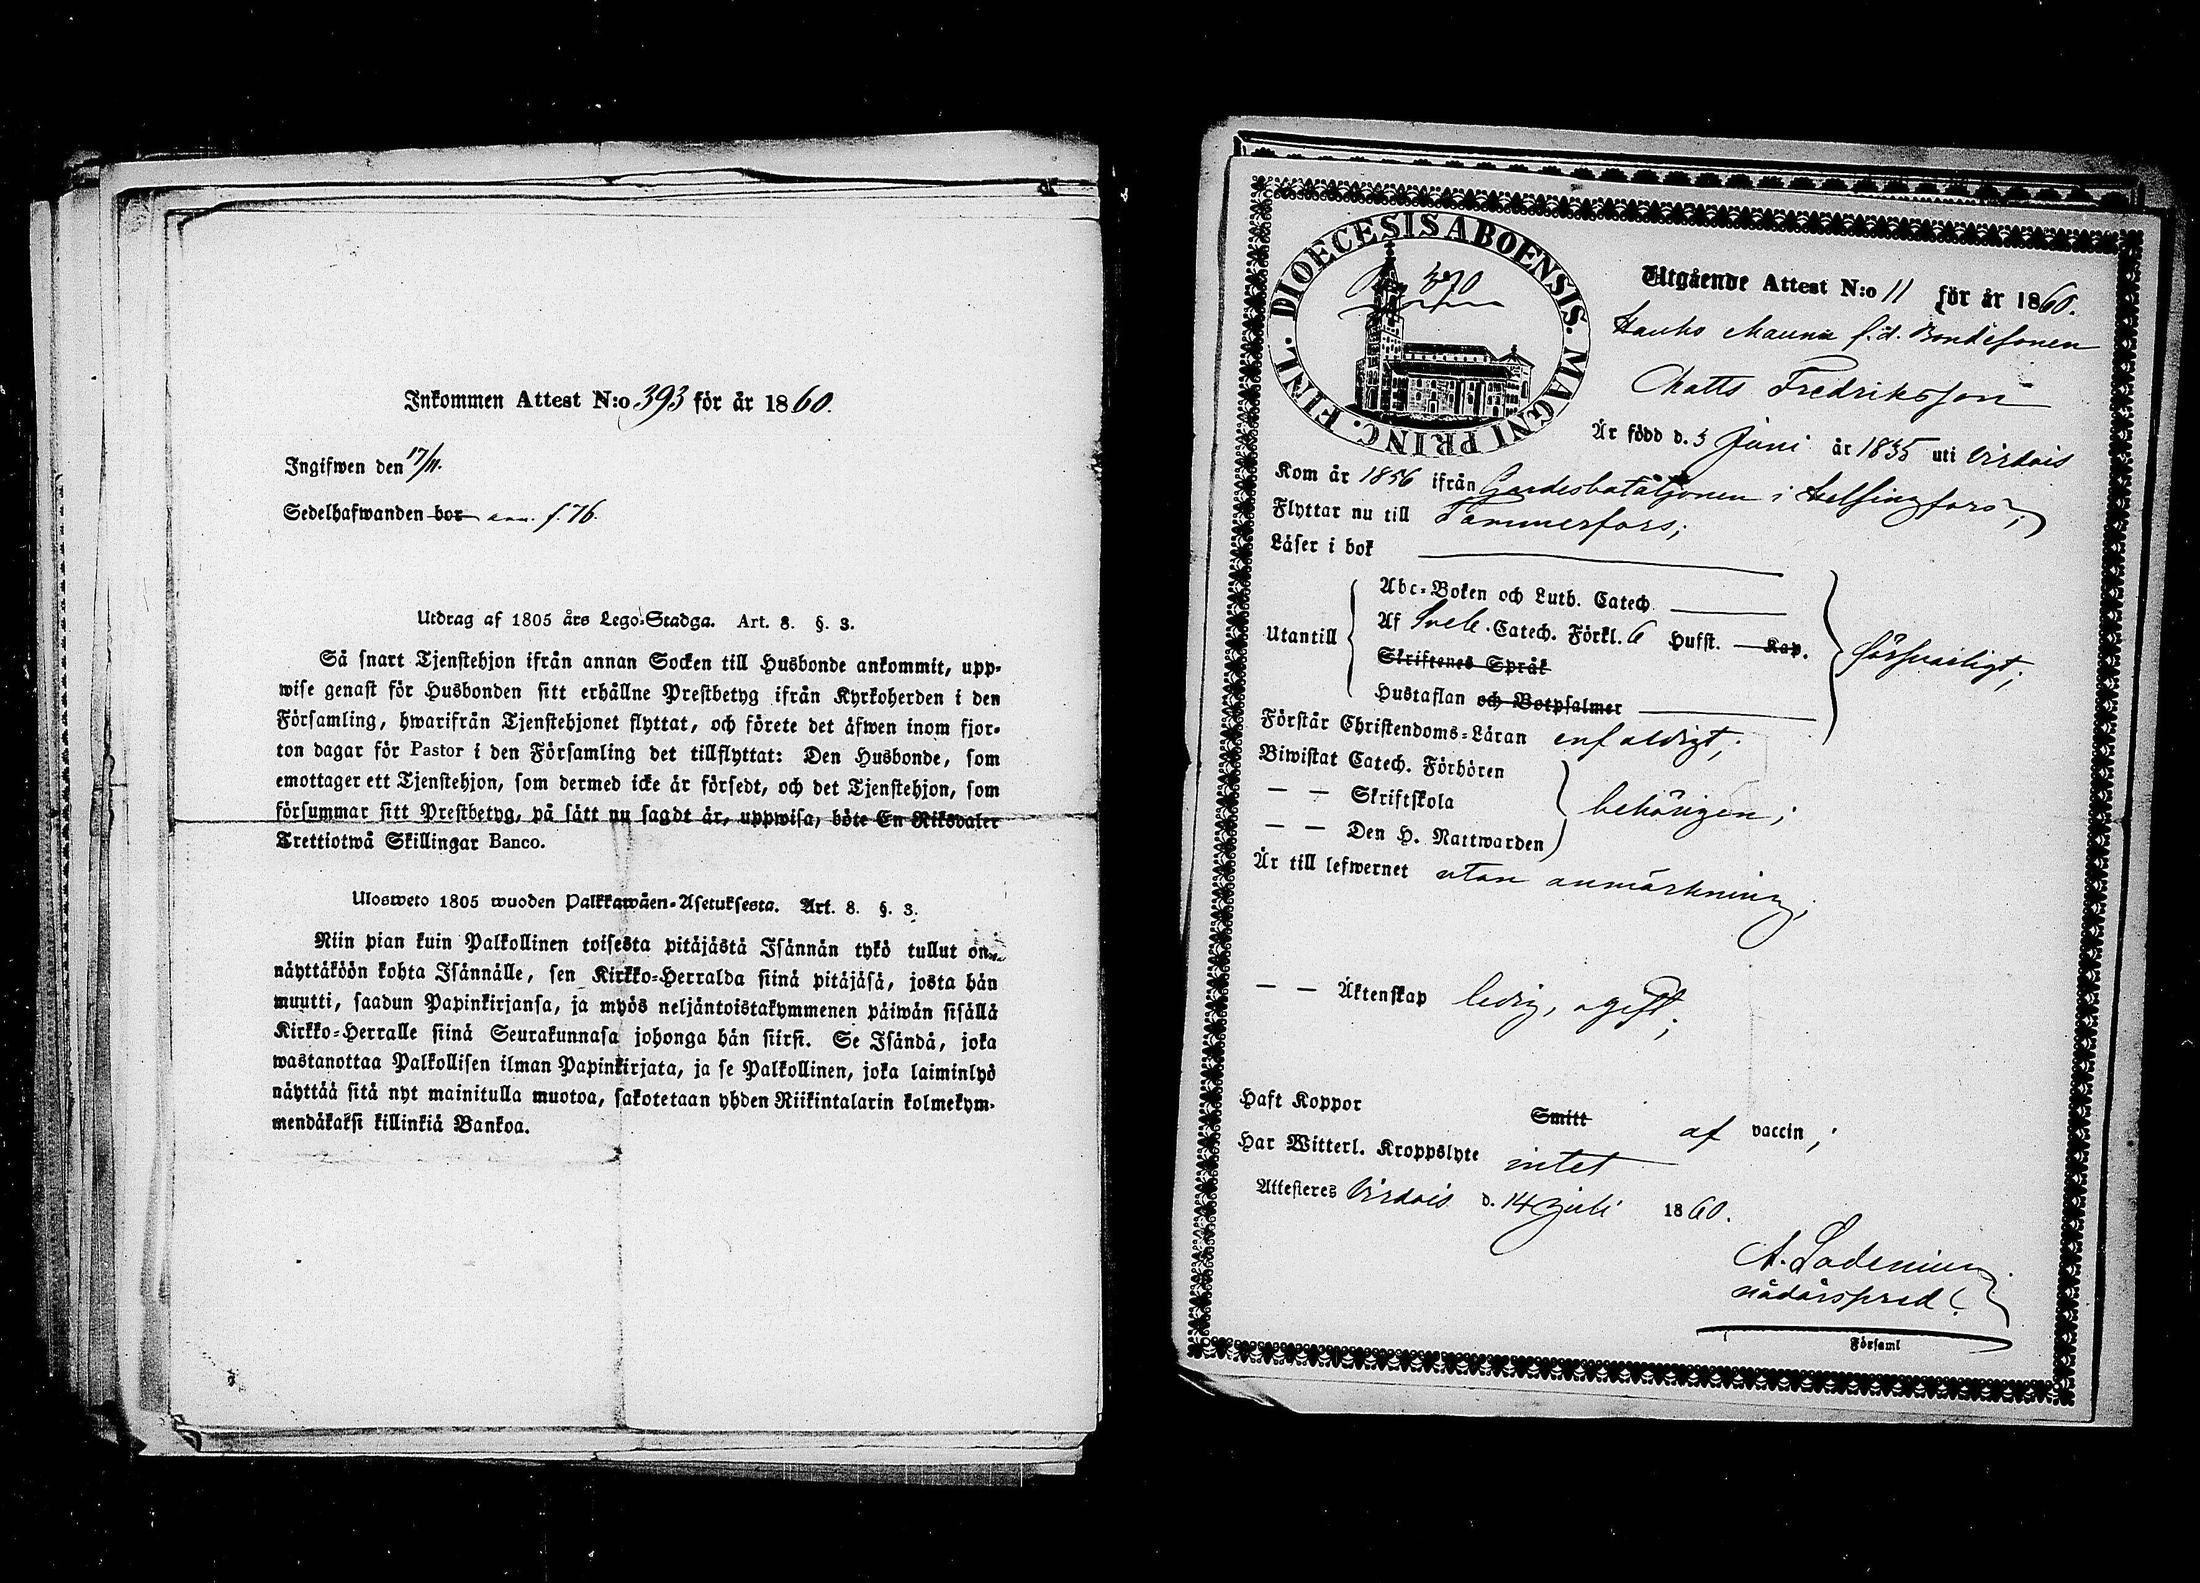 Inkommen Attest N:o 393 för år 1860.
Ingifwen den 17/11.
Sedelhafwanden bor ann. f. 76.
Utdrag af 1805 års Lego-Stadga. Art. 8. §. 3.
Så snart Tjenstehjon ifrån annan Socken till Husbonde ankommit, upp-
wise genast för Husbonden sitt erhållne Prestbetyg ifrån Kyrkoherden i den
Församling, hwarifrån Tjenstehjonet flyttat, och förete det äfwen inom fjor-
ton dagar för Pastor i den Församling det tillflyttat: Den Husbonde, som
emottager ett Tjenstehjon, som dermed icke är försedt, och det Tjenstehjon, som
försummar sitt Prestbetyg, på sätt nu sagdt är, uppwisa, böte En Riksdaler
Trettiotwå Skillingar Banco.
Ulosweto 1805 wuoden Palkkawäen-Asetuksesta. Art. 8. §. 3.
Niin pian kuin Palkollinen toisesta pitäjästä Isännän tykö tullut on,
näyttäköön kohta Isännälle, sen Kirkko-Herralda siinä pitäjäsä, josta hän
muutti, saadun Papinkirjansa, ja myös neljäntoistakymmenen päiwän sisällä
Kirkko-Herralle siinä Seurakunnasa johonga hän siirsi. Se Isändä, joka
wastanottaa Palkollisen ilman Papinkirjata, ja se Palkollinen, joka laiminlyö
näyttää sitä nyt mainitulla muotoa, sakotetaan yhden Riikintalarin kolmekym-
mendäkaksi killinkiä Bankoa.
DIOECESIS ABOENSIS. MAGNI PRINC. FINL.
Utgående Attest N:o 11 för år 1860.
f. d. Bondesonen
Matts Fredriksson
Är född d. 3 Juni år 1835 uti Virdois
Kom år 1856 ifrån Gardesbataljonen i Helsingfors;
Flyttar nu till Tammerfors;
Läser i bok
Utantill
Abc-Boken och Luth. Catech.
Af Sveb. Catech. Förkl. 6 Hufst. Kap.
Skriftenes Språk
Hustaflan och Botpsalmer
försvarligt;
Förstår Christendoms-Läran enfaldigt;
Biwistat Catech. Förhören
— — Skriftskola
— — Den H. Nattwarden
behörigen;
Är till lefwernet utan anmärkning;
— — Äktenskap ledig, ogift;
Haft Koppor Smitt af vaccin;
Har Witterl. Kroppslyte intet
Attesteras Virdois d. 14 Juli 1860.
A. Lodenius
nådårspred.
Församl